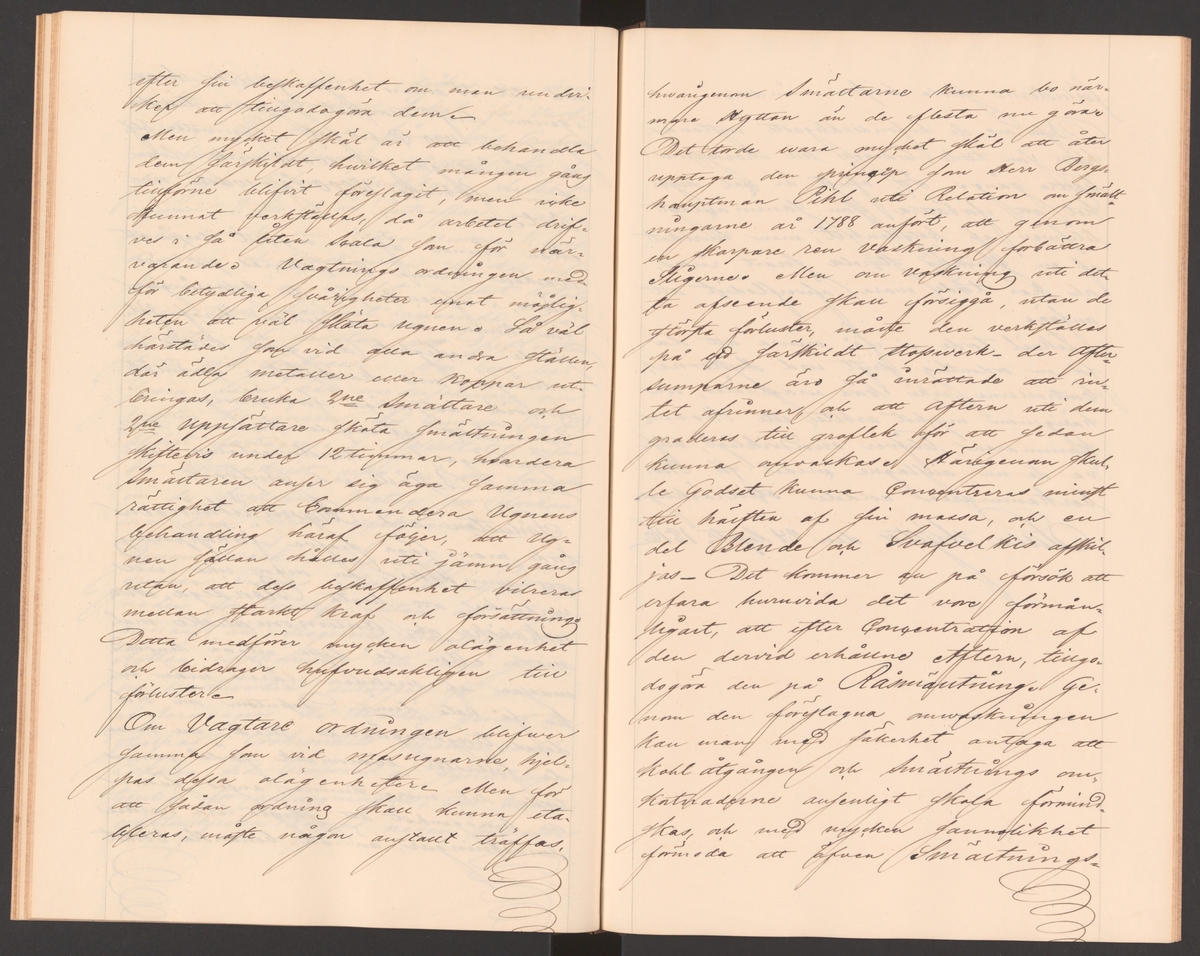 efter sin beskaffenhet om man undvi-
ker att tingodogöra dem.
Men mycket skäl är att behandla
dem särskildt, hvilket mången gång
tillförne blifvit föreslagit, men icke
kunnat verkställas, då arbetet drif-
ves i så liten Scala som för när-
varande. Vagtnings ordningen med-
för betydliga svårigheter emot möjlig-
heten att väl sköta ugnen. Så väl
härstädes som vid alla andra ställen,
där ädla metaller eller koppar ut-
bringas, bruka 2ne Smältare och
2ne Uppsättare sköta smältningen
skiftevis under 12 timmar, hvardera
Smältaren anser sig äga samma
rättighet att Commendera Ugnens
behandling häraf följer, att Ug-
nen sällan hålles uti jämn gång
utan, att dess beskaffenhet vilreras
mellan starkt kraf och försättning.
Detta medförer mycken olägenhet
och bidrager hufvudsakligen till
förluster.
Om Vagtare ordningen blifwer
samma som vid masugnarne, hjel-
pas dessa olägenheter. Men för
att sådan ordning skall kunna eta-
bleras, måste någon anstallt träffas,
hwarigenom Smältarne kunna bo när-
mare Hyttan än de flesta nu göra.
Det torde wara mycket skäl att åter
upptaga den princip som Herr Bergs-
hauptman Pihl uti Relation om smält
ningarne år 1788 anfört, att genom
en skarpare ren vaskning förbättra
Sligerne. Men om vaskning uti det-
ta afseende skall försiggå, utan de
största förluster, måste den verkställas
på ett särskildt stopswerk - der After-
sumparne äro så inrättade att in-
tet afrinner, och att Aftern uti dem
graderas till groflek för att sedan
kunna omvaskas. Härigenom skul-
le Godset kunna Concentreras minst
till hälften af sin massa, och en
del Blende och Svafvelkis afskil-
jas - Det kommer an på försök att
erfara huruvida det vore förmån-
ligast, att efter Concentration af
den dervid erhållne Aftern, tingo-
dogöra den på Råsmältning. Ge-
nom den föreslagna omwaskningen
kan man med säkerhet antaga att
kohl åtgången och Smältnings om-
kostnaderne ansenligt skola förmind-
skas, och med mycken sannolikhet
förmoda att äfven Smältnings-